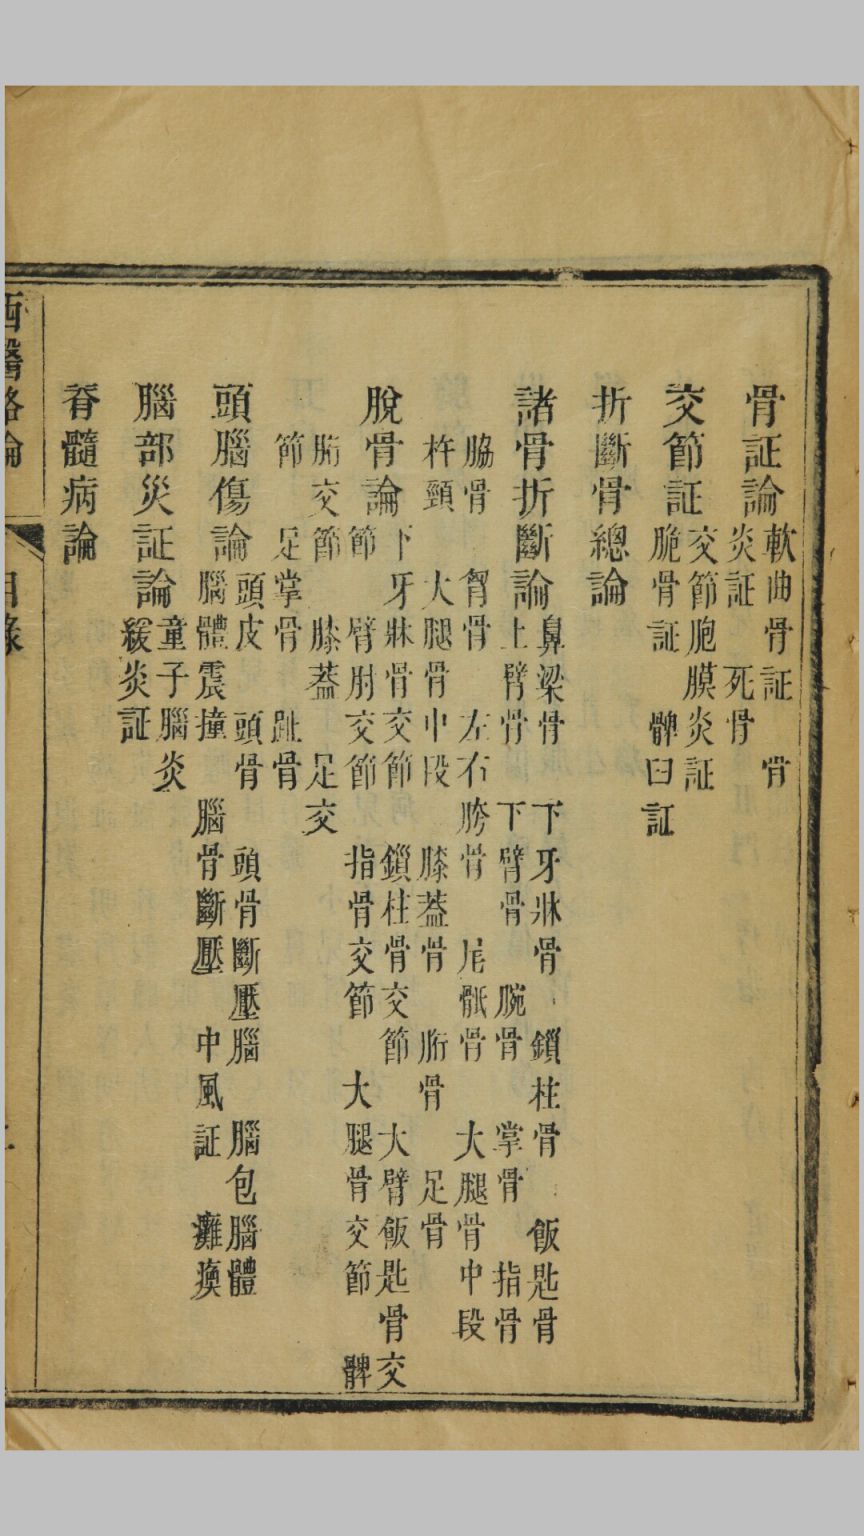 骨証論
軟曲骨証　骨
炎証　死骨
交節証
交節胞膜炎証
脆骨証　髀臼証
折斷骨總論
諸骨折斷論
鼻梁骨　下牙牀骨　鎖柱骨　飯匙骨
上臂骨　下臂骨　腕骨　掌骨　指骨
脇骨　胷骨　左右胯骨　尾骶骨　大腿骨中段
杵頸　大腿骨中段　膝蓋骨　胻骨　足骨
脫骨論
下牙牀骨交節　鎖柱骨交節　大臂飯匙骨交
節　臂肘交節　指骨交節　大腿骨交節　髀
胻交節　膝蓋　足交
節　足掌骨　趾骨
頭腦傷論
頭皮　頭骨　頭骨斷壓腦　腦包腦體
腦體震撞　腦骨斷壓　中風証　癱瘓
腦部炎証論
童子腦炎
緩炎証
脊髓病論
西醫略論　目錄